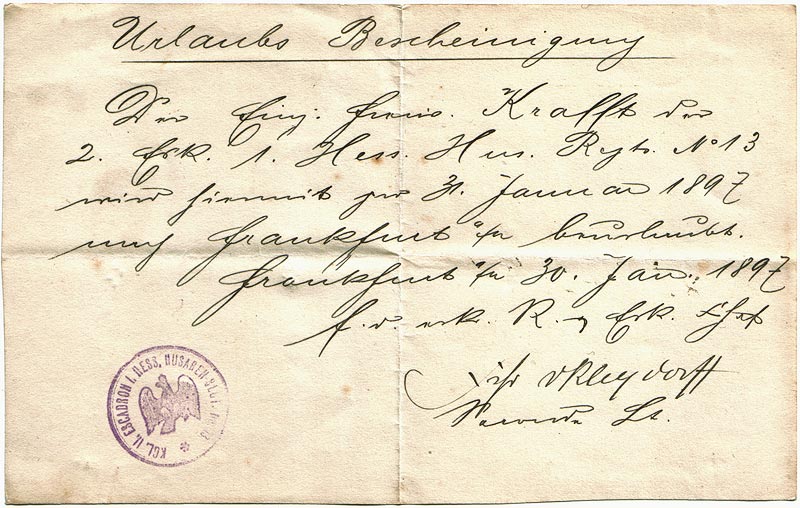 Urlaubs Bescheinigung
Der Einj. Freiw. Krafft der
2. Esk. 1. Hess. Hus. Regts. No 13
wird hiermit zum 31. Januar 1897
nach Frankfurt a/M beurlaubt.
Frankfurt a/M 30. Jan. 1897
R. u. Esk. Chef
Secondе Lt.
KGL. II. ESCADRON I. HESS. HUSAREN-REGT. No 13